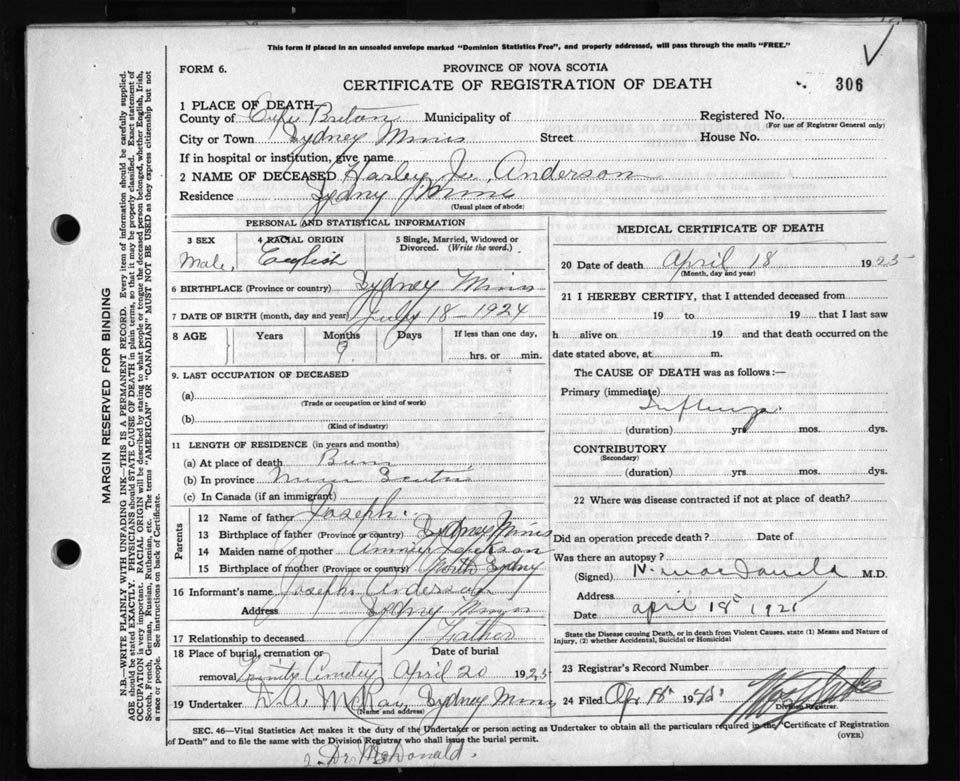 This form if placed in an unsealed envelope marked "Dominion Statistics Free", and properly addressed, will pass through the mails "FREE."
FORM 6.
PROVINCE OF NOVA SCOTIA
CERTIFICATE OF REGISTRATION OF DEATH
306
1 PLACE OF DEATH—
County of Cape Breton Municipality of Registered No.
(For use of Registrar General only)
City or Town Sydney Mines Street House No.
If in hospital or institution, give name
2 NAME OF DECEASED Harley Anderson
Residence Sydney Mines
(Usual place of abode)
PERSONAL AND STATISTICAL INFORMATION
3 SEX 4 RACIAL ORIGIN 5 Single, Married, Widowed or Divorced. (Write the word.)
Male, English
6 BIRTHPLACE (Province or country) Sydney Mines
7 DATE OF BIRTH (month, day and year) July 18 - 1924
8 AGE Years Months Days If less than one day,
9 hrs. or min.
9. LAST OCCUPATION OF DECEASED
(a)
(Trade or occupation or kind of work)
(b)
(Kind of industry)
11 LENGTH OF RESIDENCE (in years and months)
(a) At place of death
(b) In province
(c) In Canada (if an immigrant)
Parents
12 Name of father Joseph.
13 Birthplace of father (Province or country) Sydney Mines
14 Maiden name of mother Annie
15 Birthplace of mother (Province or country) North Sydney
16 Informant's name Joseph Anderson
Address Sydney Mines
17 Relationship to deceased Father
18 Place of burial, cremation or removal Trinity Cemetery Date of burial April 20 1925
19 Undertaker D. A. McKay, Sydney Mines
(Name and address)
MEDICAL CERTIFICATE OF DEATH
20 Date of death April 18 1925
(Month, day and year)
21 I HEREBY CERTIFY, that I attended deceased from
19 to 19 that I last saw
h alive on 19 and that death occurred on the
date stated above, at m.
The CAUSE OF DEATH was as follows:—
Primary (immediate)
Influenza.
(duration) yrs. mos. dys.
CONTRIBUTORY
(Secondary)
(duration) yrs. mos. dys.
22 Where was disease contracted if not at place of death?
Did an operation precede death? Date of
Was there an autopsy?
(Signed) M.D.
Address
Date April 18
State the Disease causing Death, or in death from Violent Causes, state (1) Means and Nature of
Injury, (2) whether Accidental, Suicidal or Homicidal
23 Registrar's Record Number
24 Filed Apr 18 19
Division Registrar.
SEC. 46—Vital Statistics Act makes it the duty of the Undertaker or person acting as Undertaker to obtain all the particulars required in the "Certificate of Registration
of Death" and to file the same with the Division Registrar who shall issue the burial permit.
(OVER)
Dr McDonald.
MARGIN RESERVED FOR BINDING
N.B.—WRITE PLAINLY WITH UNFADING INK—THIS IS A PERMANENT RECORD. Every item of information should be carefully supplied.
AGE should be stated EXACTLY. PHYSICIANS should STATE CAUSE OF DEATH in plain terms, so that it may be properly classified. Exact statement of
OCCUPATION is very important. RACIAL ORIGIN will be described by stating to what people or tongue the deceased person belonged, whether English, Irish,
Scotch, French, German, Russian, Ruthenian, etc. The terms "AMERICAN" OR "CANADIAN" MUST NOT BE USED as they express citizenship but not
a race or people. See instructions on back of Certificate.